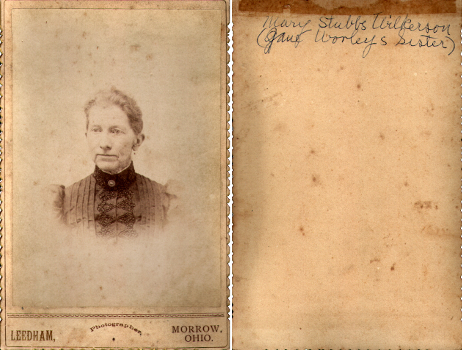 Mary Stubbs Wilkerson
(Jane Worley's Sister)
LEEDHAM,
Photographer,
MORROW,
OHIO.